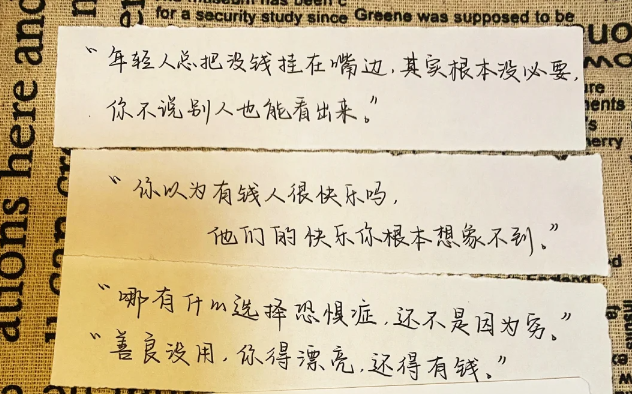 for a security study since Greene was supposed to be
ations here and
“年轻人总把没钱挂在嘴边，其实根本没必要，
你不说别人也能看出来。”
“你以为有钱人很快乐吗，
他们的快乐你根本想象不到。”
“哪有什么选择恐惧症，还不是因为穷。”
“善良没用，你得漂亮，还得有钱。”